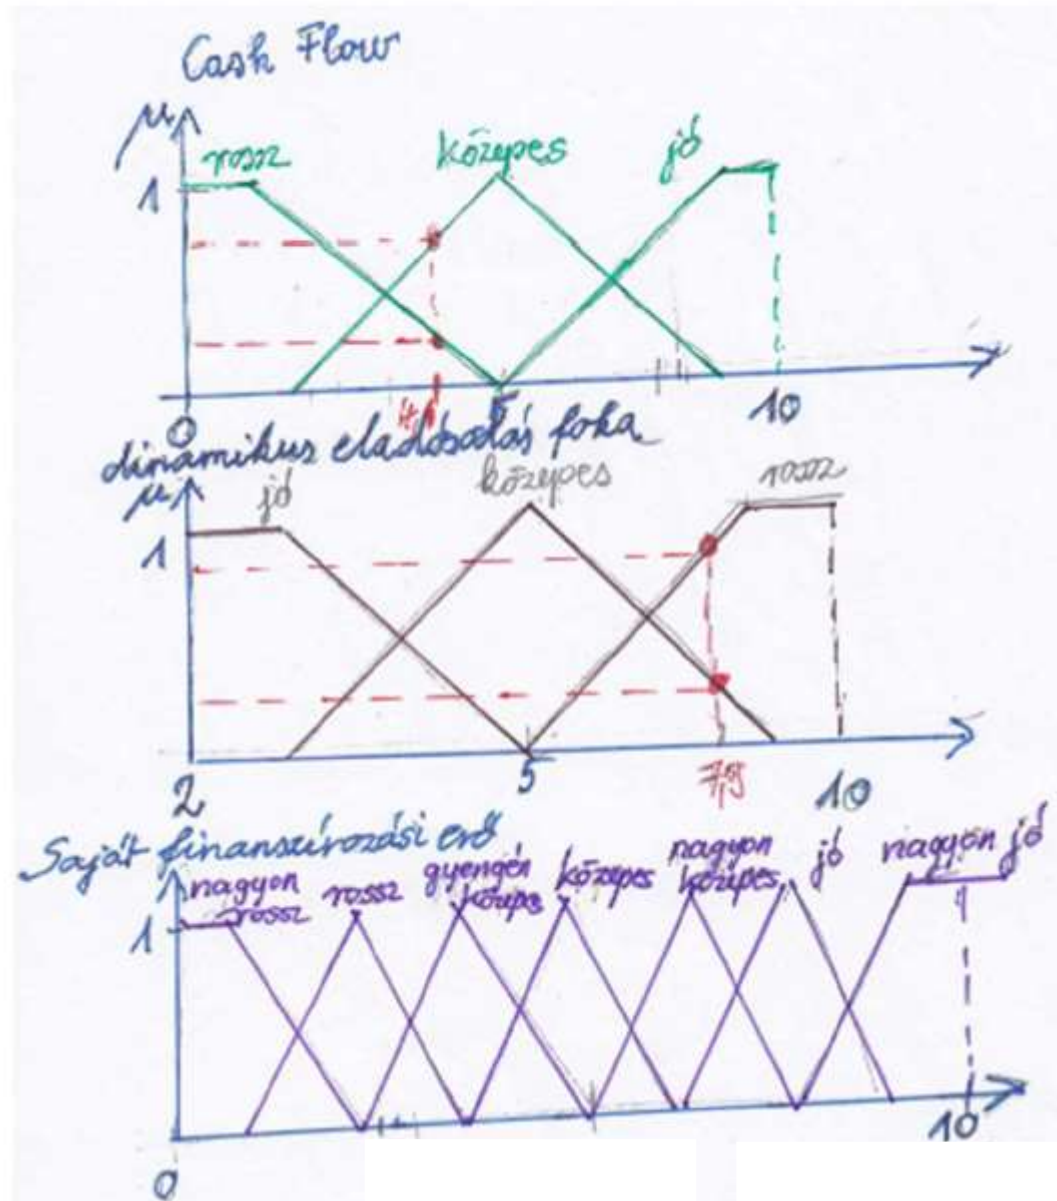 Cash Flow
μ
rossz közepes jó
1
0 5 10
dinamikus eladósodás foka
μ jó közepes rossz
1
2 5 7,5 10
Saját finanszírozási erő
nagyon rossz rossz gyengén közepes közepes nagyon közepes jó nagyon jó
1
0 10